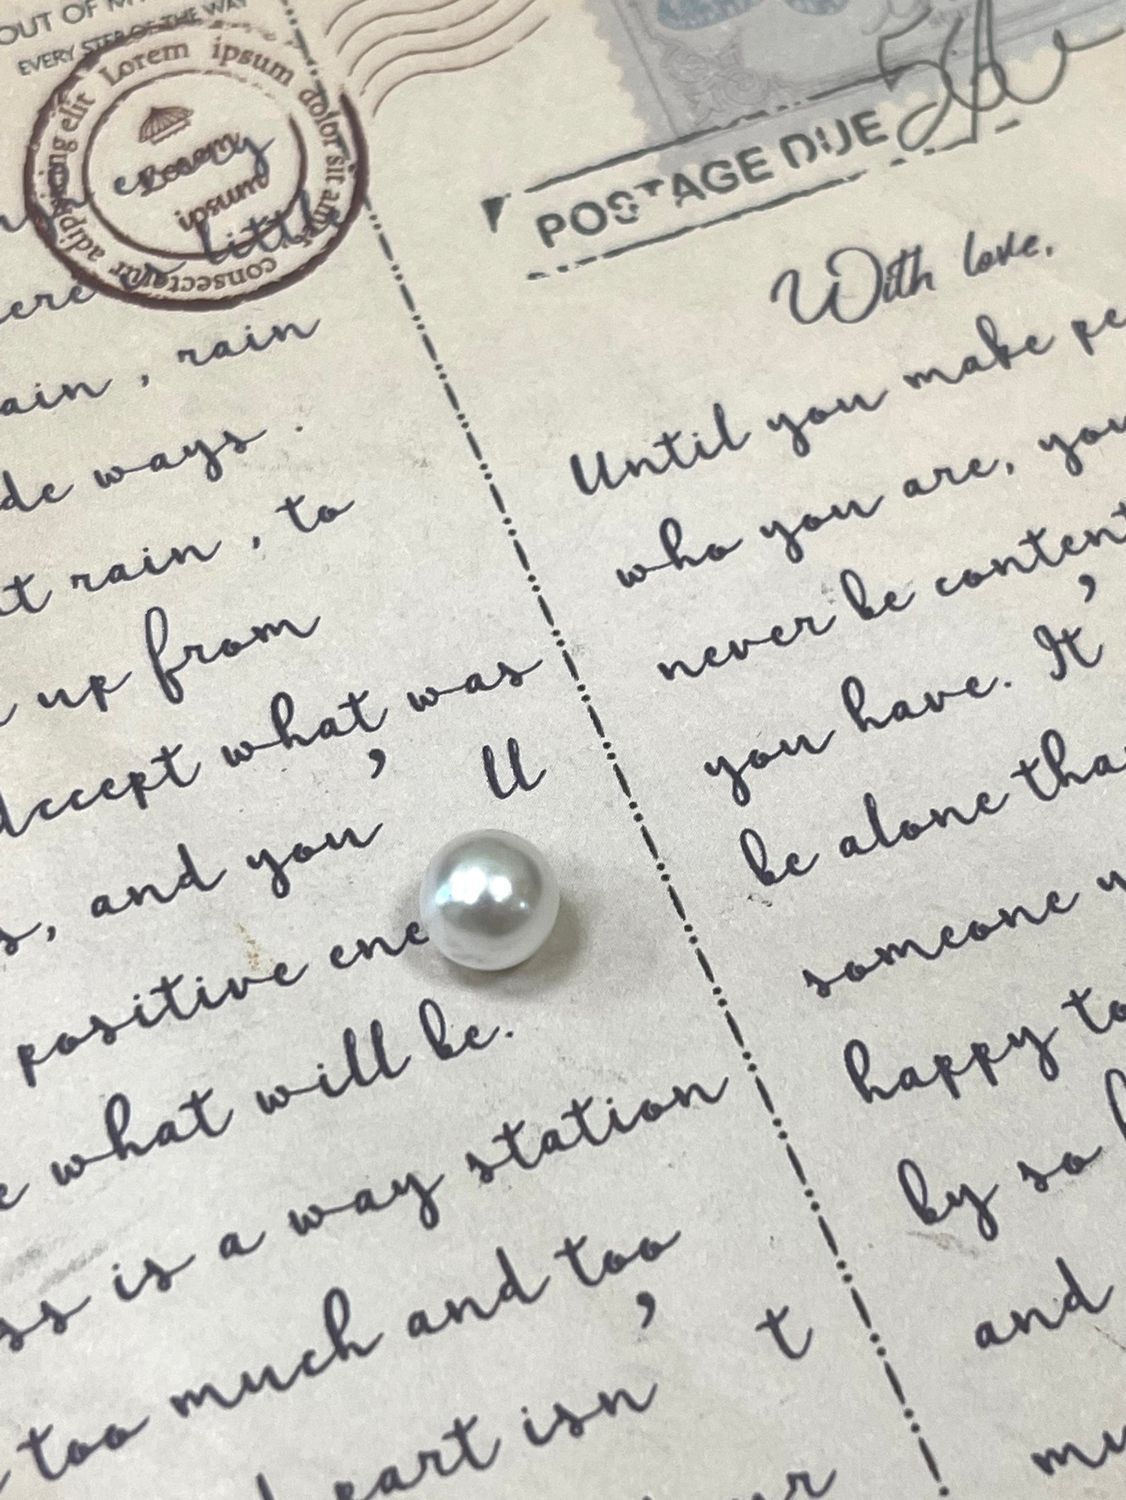 OUT OF M
EVERY STEP OF THE WAY
Lorem ipsum dolor sit amet consectetur adipiscing elit
little
ere
ain, rain
de ways.
t rain, to
up from
accept what was
s, and you'll
positive ene
what will be.
ss is a way station
too much and too
too
isn't
POSTAGE DUE
With love,
Until you make pe
who you are, you
never be content
you have. It'
be alone tha
someone
happy to
by so
and
mu